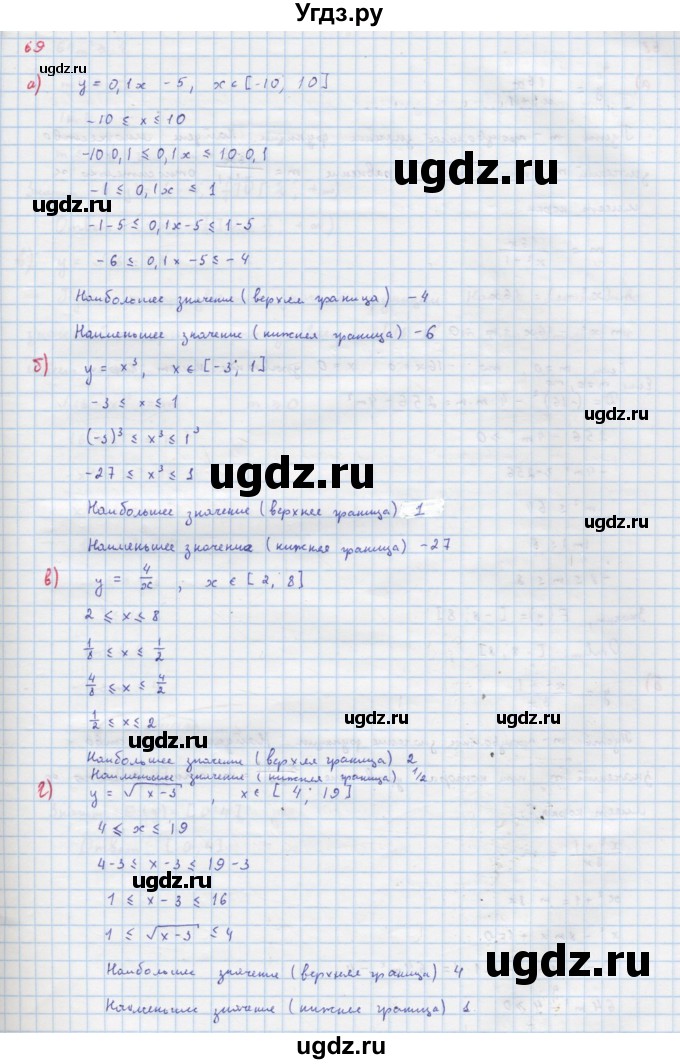 Угдз.ру
69
а) y = 0,1x - 5, x ∈ [-10; 10]
-10 ≤ x ≤ 10
-10·0,1 ≤ 0,1x ≤ 10·0,1
ugdz.ru
-1 ≤ 0,1x ≤ 1
ugdz.ru
-1-5 ≤ 0,1x-5 ≤ 1-5
ugdz.ru
-6 ≤ 0,1x-5 ≤ -4
Наибольшее значение (верхняя граница) -4
Наименьшее значение (нижняя граница) -6
б) y = x³, x ∈ [-3; 1]
-3 ≤ x ≤ 1
ugdz.ru
(-3)³ ≤ x³ ≤ 1³
ugdz.ru
-27 ≤ x³ ≤ 1
Наибольшее значение (верхнее граница) 1
ugdz.ru
Наименьшее значение (нижняя граница) -27
в) y = 4/x, x ∈ [2; 8]
2 ≤ x ≤ 8
ugdz.ru
1/8 ≤ x ≤ 1/2
4/8 ≤ x ≤ 4/2
1/2 ≤ x ≤ 2
ugdz.ru
ugdz.ru
ugdz.ru
Наибольшее значение (верхняя граница) 2
Наименьшее значение (нижняя граница) 1/2
г) y = √x-3, x ∈ [4; 19]
4 ≤ x ≤ 19
4-3 ≤ x-3 ≤ 19-3
ugdz.ru
1 ≤ x-3 ≤ 16
1 ≤ √x-3 ≤ 4
ugdz.ru
Наибольшее значение (верхнее граница) 4
ugdz.ru
Наименьшее значение (нижнее граница) 1
ugdz.ru